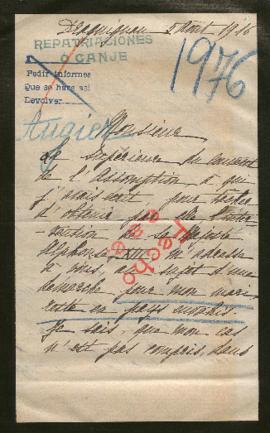 Draguignan 5 Août 1916
REPATRIACIONES
O CANJE
1976
Pedir informes
Que se hara asi
Devolver
Augier
Monsieur
La Supérieure du couvent
de l'Assomption à qui
j'avais écrit pour tâcher
d'obtenir par
de Sa Majesté
Alphonse XIII m'adresse
à vous, au sujet d'une
démarche pour mon mari
resté en pays envahis.
Je sais, que mon cas
n'est pas compris dans
Hecho